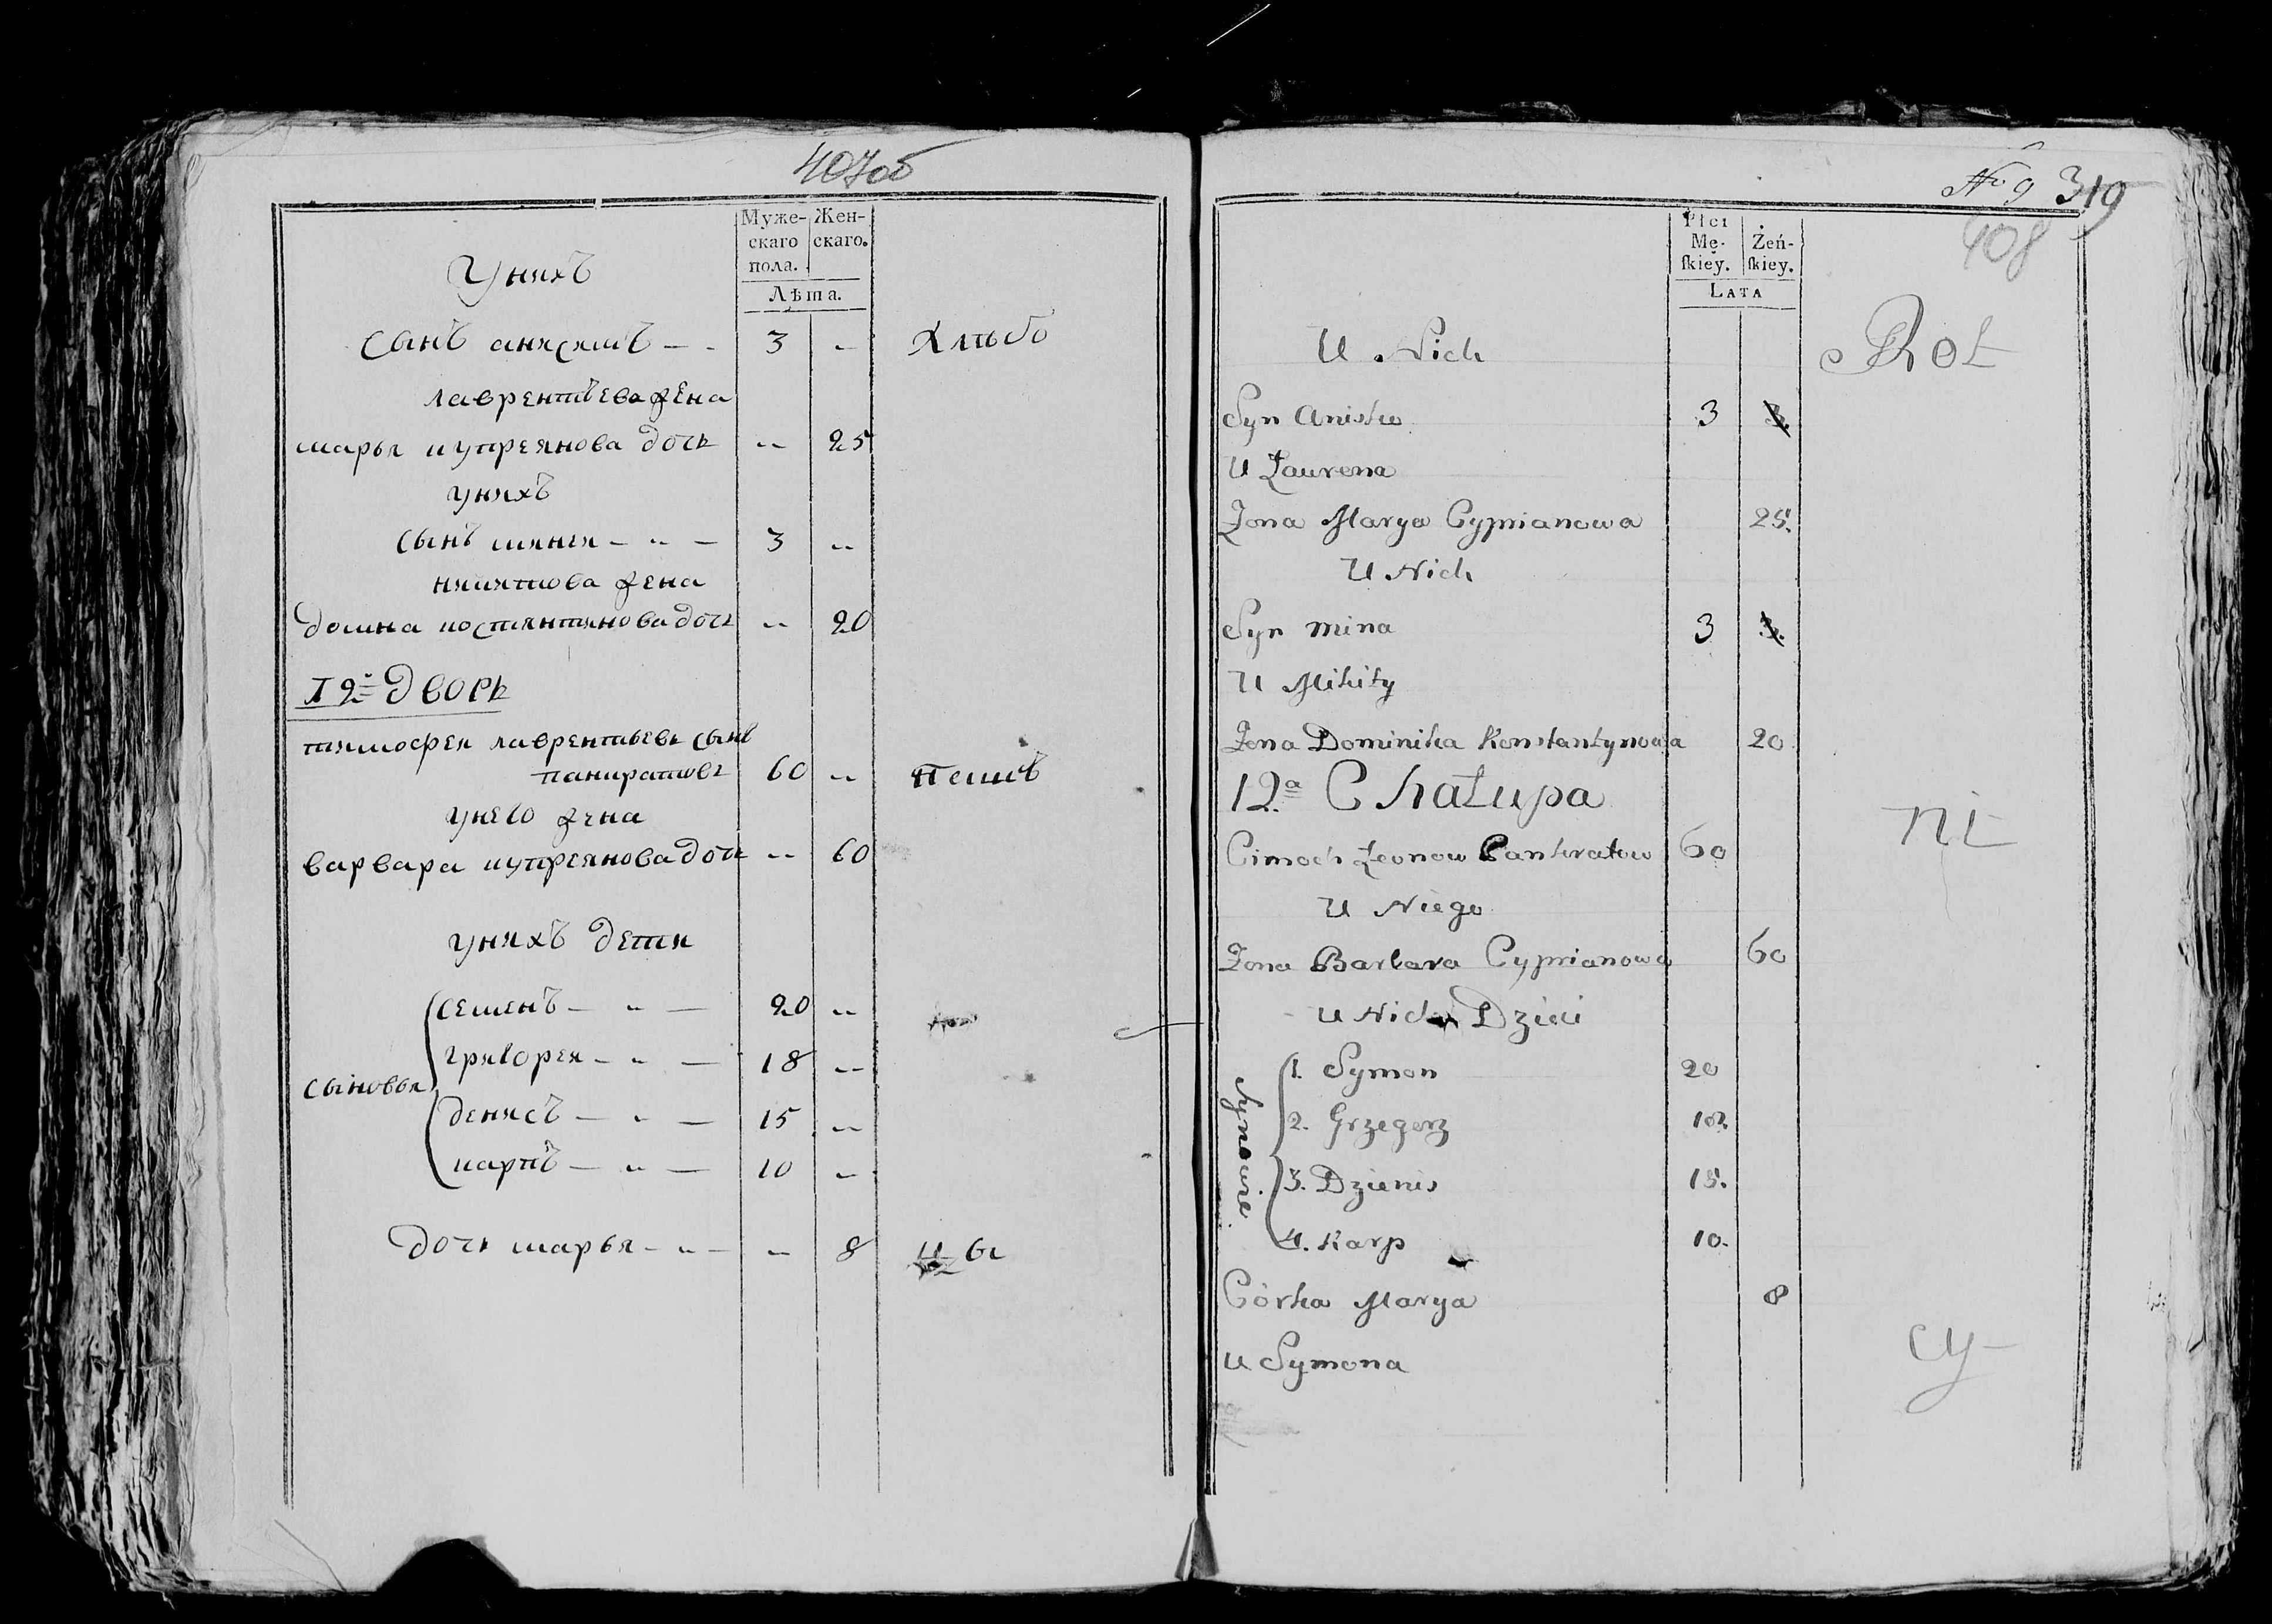 407об
Муже-
скаго
пола.
Жен-
скаго.
Лѣта.
У нихъ
сынъ анисимъ 3 Хлѣбо
лаврентьева жена
марья купреянова дочь 25
у нихъ
сынъ минея 3
никитова жена
домна костянтинова дочь 20
12й дворъ
тимофеи лаврентьевъ сынъ
панкратовъ 60 пашъ
у него жена
варвара купреянова дочь 60
у нихъ дети
сыновья
семенъ 20
григореи 18
денисъ 15
карпъ 10
дочь марья 8 цы
№ 9 319
408
Płci
Mę-
skiey.
Żeń-
skiey.
LATA
U Nich Rol
Syn Anisko 3 3.
U Laurena
Zona Marya Cyprianowa 25.
U Nich
Syn Mina 3 3.
U Mikity
Zona Dominika Konstantynowa 20
12a Chałupa ni
Cimoch Leonow Pankratow 60
U Niego
Zona Barbara Cyprianowa 60
U Nich Dzieci
Synowie
1. Symon 20
2. Grzegorz 18.
3. Dzienis 15.
4. Karp 10.
Córka Marya 8
U Symona cy